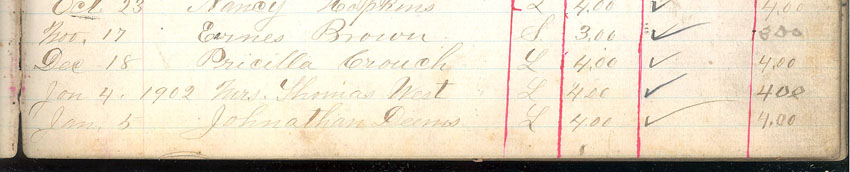 Oct 23 Nancy Hopkins L 4.00 ✓ 4.00
Nov. 17 Ernes Brown S 3.00 ✓ 300
Dec 18 Pricilla Crouch L 4.00 ✓ 4.00
Jan 4. 1902 Mrs. Thomas West L 4.00 ✓ 400
Jan. 5 Johnathan Deems L 4.00 ✓ 4.00